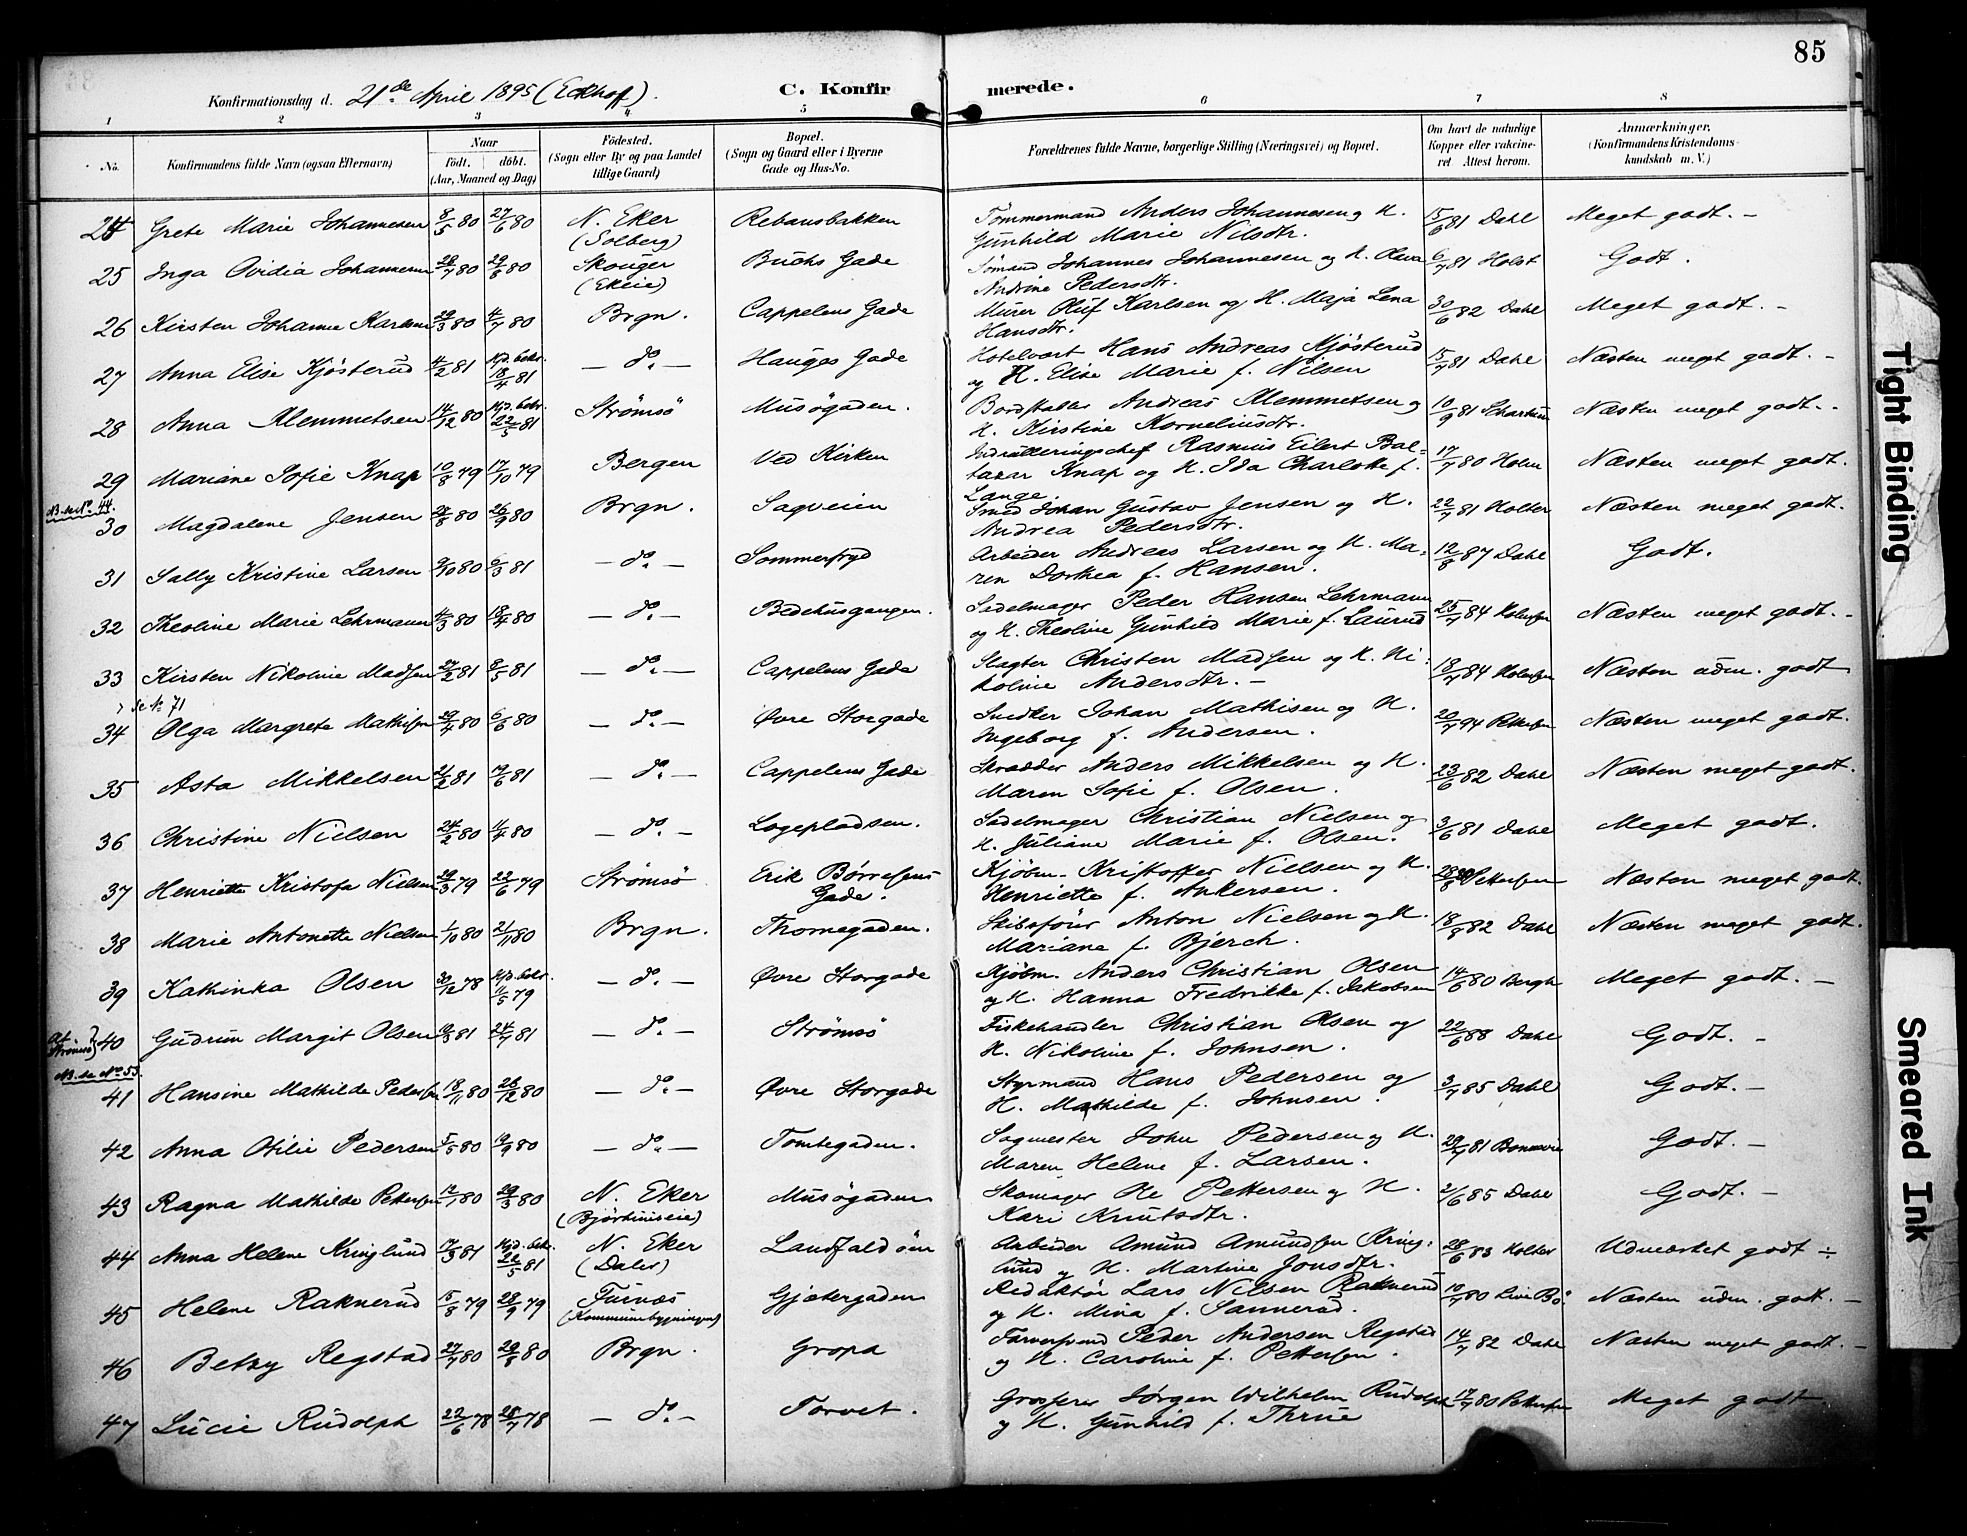 85
Konfirmationsdag d. 21de April 1895 (Eckhof). C. Konfirmerede.
1 2 3 4 5 6 7 8
No. Konfirmandens fulde Navn (ogsaa Efternavn) Naar födt. döbt. (Aar, Maaned og Dag) Födested. (Sogn eller By og paa Landet tillige Gaard) Bopæl. (Sogn og Gaard eller i Byerne Gade og Hus-No. Forældrenes fulde Navne, borgerlige Stilling (Næringsvei) og Bopæl. Om havt de naturlige Kopper eller vakcineret Attest herom. Anmærkninger. (Konfirmandens Kristendomskundskab m. V.)
24 Grete Marie Johannesen 8/5 80 27/6 80 N. Eker Rebansbakken Tømmermand Anders Johannesen og H. 15/6 81 Dahl Meget godt. -
(Solberg) Gunhild Marie Nilsdtr.
25 Inga Ovidia Johannesen 80 29/8 80 Skouger Buchs Gade Sømand Johannes Johannesen og H. Oleva 6/7 81 Holst Godt.
(Ekeie) Andrine Pedersdtr.
26 Kirsten Johanne Karlsen 80 4/7 80 Brgn. Cappelens Gade Murer Oluf Karlsen og H. Maja Lena 30/6 82 Dahl Meget godt. -
Hansdtr.
27 Anna Elise Kjösterud 4/2 81 Hjd. bekr. 18/4 81 - do. - Hauges Gade Hotelvært Hans Andreas Kjösterud 15/7 81 Dahl Næsten meget godt. -
og H. Elise Marie f. Nilsen
28 Anna Klemmetsen 14/12 80 Hjd. bekr. 22/5 81 Strömsö Musögaden. Bordstabler Andreas Klemmetsen og 10/9 81 Næsten meget godt. -
H. Kirstine Korneliusdtr.
29 Mariane Sofie Knap 10/8 79 17/10 79 Bergen Ved Kirken Indrulleringschef Rasmus Eilert Bal- 17/7 80 Holm Næsten meget godt.
tazar Knap og H. Ida Charlotte f.
Lange
NB. se No. 44.
30 Magdalene Jensen 80 26/9 80 Brgn. Sagveien Smed Johan Gustav Jensen og H. 22/7 81 Holter Næsten meget godt.
Andrea Pedersdtr.
31 Sally Kristine Larsen 9/10 80 6/3 81 - do. - Sommerfryd Arbeider Andreas Larsen og H. Ma- 12/8 87 Dahl Godt.
ren Dorthea f. Hansen.
32 Theoline Marie Lehrmann 4/3 80 18/4 80 - do. - Bedehusgangen. Sadelmager Peder Hansen Lehrmann 25/7 84 Næsten meget godt. -
og H. Theoline Gunhild Marie f. Laurud
33 Kirsten Nikoline Madsen 27/2 81 8/5 81 - do. - Cappelens Gade Slagter Christen Madsen og H. Ni- 18/7 84 Næsten udm. godt
koline Andersdtr. -
se No 71
34 Olga Margrete Mathisen 29/4 80 6/6 80 - do. - Øvre Storgade Snedker Johan Mathisen og H. 20/7 94 Pettersen Næsten meget godt.
Ingeborg f. Andersen.
35 Asta Mikkelsen 21/2 81 19/6 81 - do. - Cappelens Gade Skrædder Anders Mikkelsen og H. 23/6 82 Dahl Næsten meget godt.
Maren Sofie f. Olsen.
36 Christine Nielsen 24/2 80 11/4 80 - do. - Logepladsen. Sadelmager Christian Nielsen og 3/6 81 Dahl Meget godt.
H. Juliane Marie f. Olsen.
37 Henriette Kristofa Nielsen 29/3 79 22/6 79 Strömsö Erik Börresens Kjöbm. Kristoffer Nielsen og H. Pettersen Næsten meget godt.
Gade. Henriette f. Ankersen.
38 Marie Antonette Nielsen 1/10 80 21/11 80 Brgn. Thornegaden. Skibsförer Anton Nielsen og H. 18/8 82 Dahl Næsten meget godt.
Mariane f. Bjerch.
39 Kathinka Olsen 30/12 78 Hjd. bekr. 11/5 79 - do. - Øvre Storgade Kjöbm. Anders Christian Olsen 14/6 80 Bergh Meget godt. -
og H. Hanna Fredrikke f. Jakobsen
40 Gudrun Margit Olsen 81 24/7 81 - do. - Strömsö Fiskehandler Christian Olsen og 22/6 88 Dahl Godt. -
Strömsö H. Nikoline f. Johnsen.
NB. se No 55.
41 Hansine Mathilde Pedersen 18/11 80 26/12 80 - do. - Øvre Storgade Styrmand Hans Pedersen og 3/7 85 Dahl Godt. -
H. Mathilde f. Johnsen.
42 Anna Otilie Pedersen 5/5 80 19/9 80 - do. - Tomtegaden. Sagmester John Pedersen og H. 29/7 81 Godt. -
Maren Helene f. Larsen.
43 Ragna Mathilde Pettersen 12/1 80 29/3 80 N. Eker Musögaden Skomager Ole Pettersen og H. 2/6 85 Dahl Godt. -
Kari Knutsdtr.
44 Anna Helene Kringlund 17/3 81 Hjd. bekr. 22/5 81 N. Eker Landfaldöen Arbeider Amund Amundsen Kring- 28/6 83 Holter Udmærket godt
(Daler) lund og H. Martine Jonsdtr.
45 Helene Raknerud 15/8 79 28/9 79 Furnæs Gjætergaden Redaktör Lars Nielsen Raknerud 10/7 80 Næsten udm. godt. -
(Kommunebygningen) og H. Mina f. Sannerud.
46 Betsy Regstad 27/7 80 29/8 80 Brgn. Gropa Farversvend Peder Andersen Regstad 14/7 82 Dahl Næsten meget godt. -
og H. Caroline f. Pettersen.
47 Lucie Rudolph 22/6 78 28/7 78 - do. - Torvet. Grosserer Jörgen Wilhelm Rudolph 17/7 80 Pettersen Meget godt
og H. Gunhild f. Thrue
Tight Binding
Smeared Ink